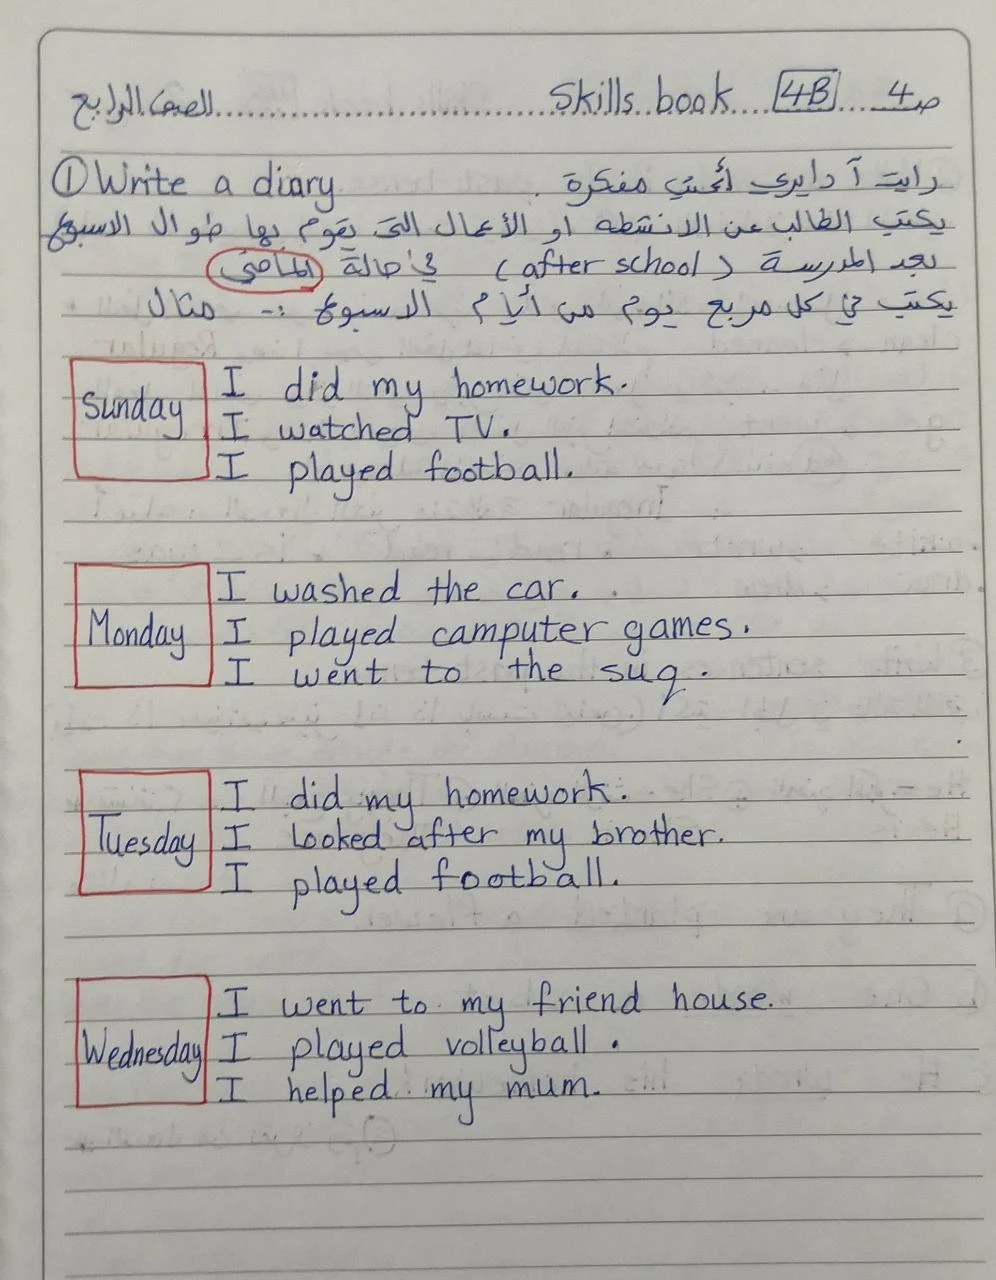 الصف الرابع .... Skills book .... 4B .... ص 4
① Write a diary رايت آ دايري أكتب مفكرة .
يكتب الطالب عن الانشطه او الأعمال التى يقوم بها طوال الاسبوع
بعد المدرسة ( after school ) في حالة الماضى
يكتب في كل مربع يوم من أيام الاسبوع :- مثال
Sunday
I did my homework.
I watched TV.
I played football.
Monday
I washed the car.
I played camputer games.
I went to the suq.
Tuesday
I did my homework.
I looked after my brother.
I played football.
Wednesday
I went to my friend house.
I played volleyball.
I helped my mum.